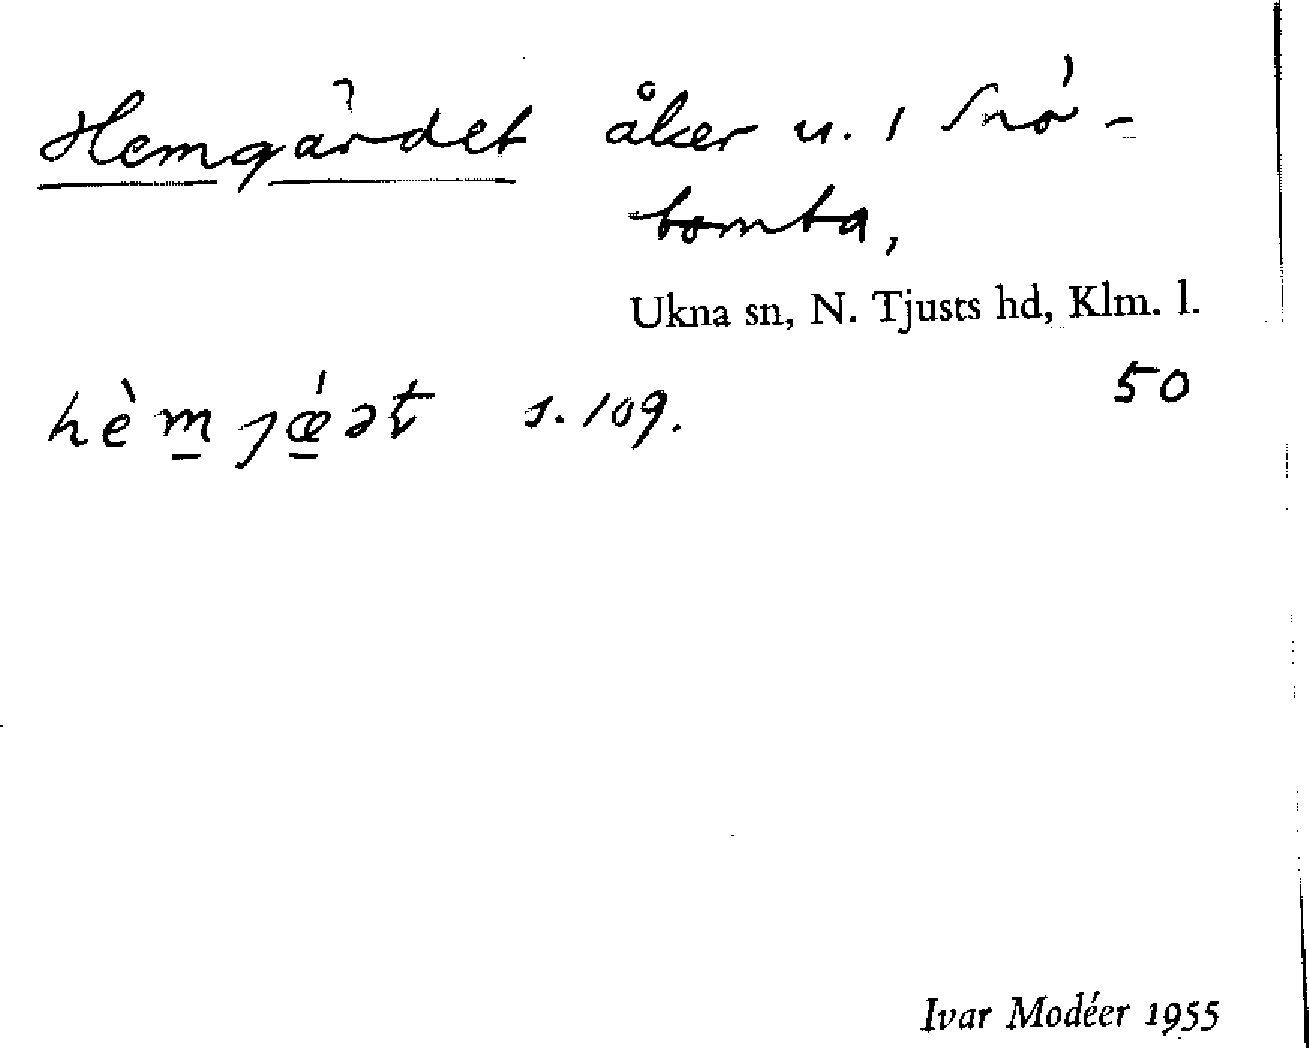 Hemgärdet åker u. 1 Snö-
tomta,
Ukna sn, N. Tjusts hd, Klm. l.
50
hèm̲ ȷǽ̲ət s. 109.
Ivar Modéer 1955